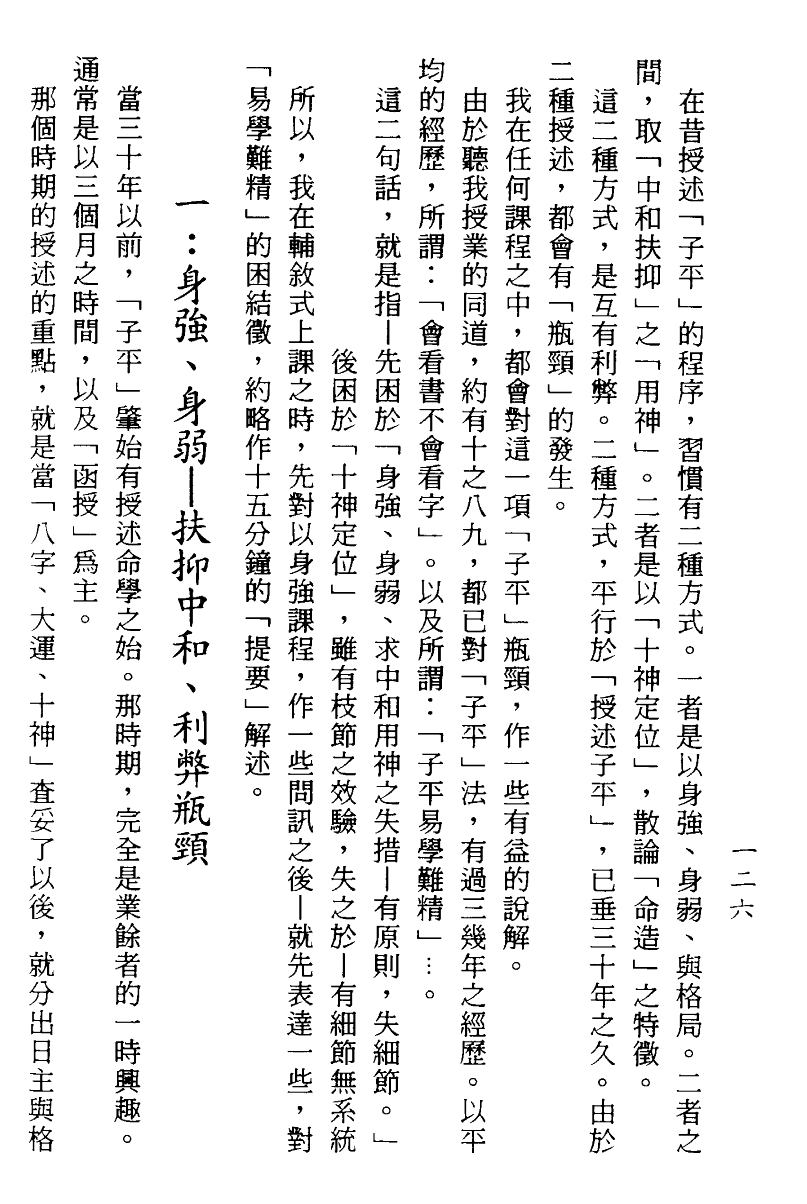 一二六
在昔授述「子平」的程序，習慣有二種方式。一者是以身強、身弱、與格局。二者之
間，取「中和扶抑」之「用神」。二者是以「十神定位」，散論「命造」之特徵。
這二種方式，是互有利弊。二種方式，平行於「授述子平」，已垂三十年之久。由於
二種授述，都會有「瓶頸」的發生。
我在任何課程之中，都會對這一項「子平」瓶頸，作一些有益的說解。
由於聽我授業的同道，約有十之八九，都已對「子平」法，有過三幾年之經歷。以平
均的經歷，所謂：「會看書不會看字」。以及所謂：「子平易學難精」…。
這二句話，就是指—先困於「身強、身弱、求中和用神之失措—有原則，失細節。」
後困於「十神定位」，雖有枝節之效驗，失之於—有細節無系統
所以，我在輔敘式上課之時，先對以身強課程，作一些問訊之後—就先表達一些，對
「易學難精」的困結徵，約略作十五分鐘的「提要」解述。
一：身強、身弱—扶抑中和、利弊瓶頸
當三十年以前，「子平」肇始有授述命學之始。那時期，完全是業餘者的一時興趣。
通常是以三個月之時間，以及「函授」爲主。
那個時期的授述的重點，就是當「八字、大運、十神」査妥了以後，就分出日主與格